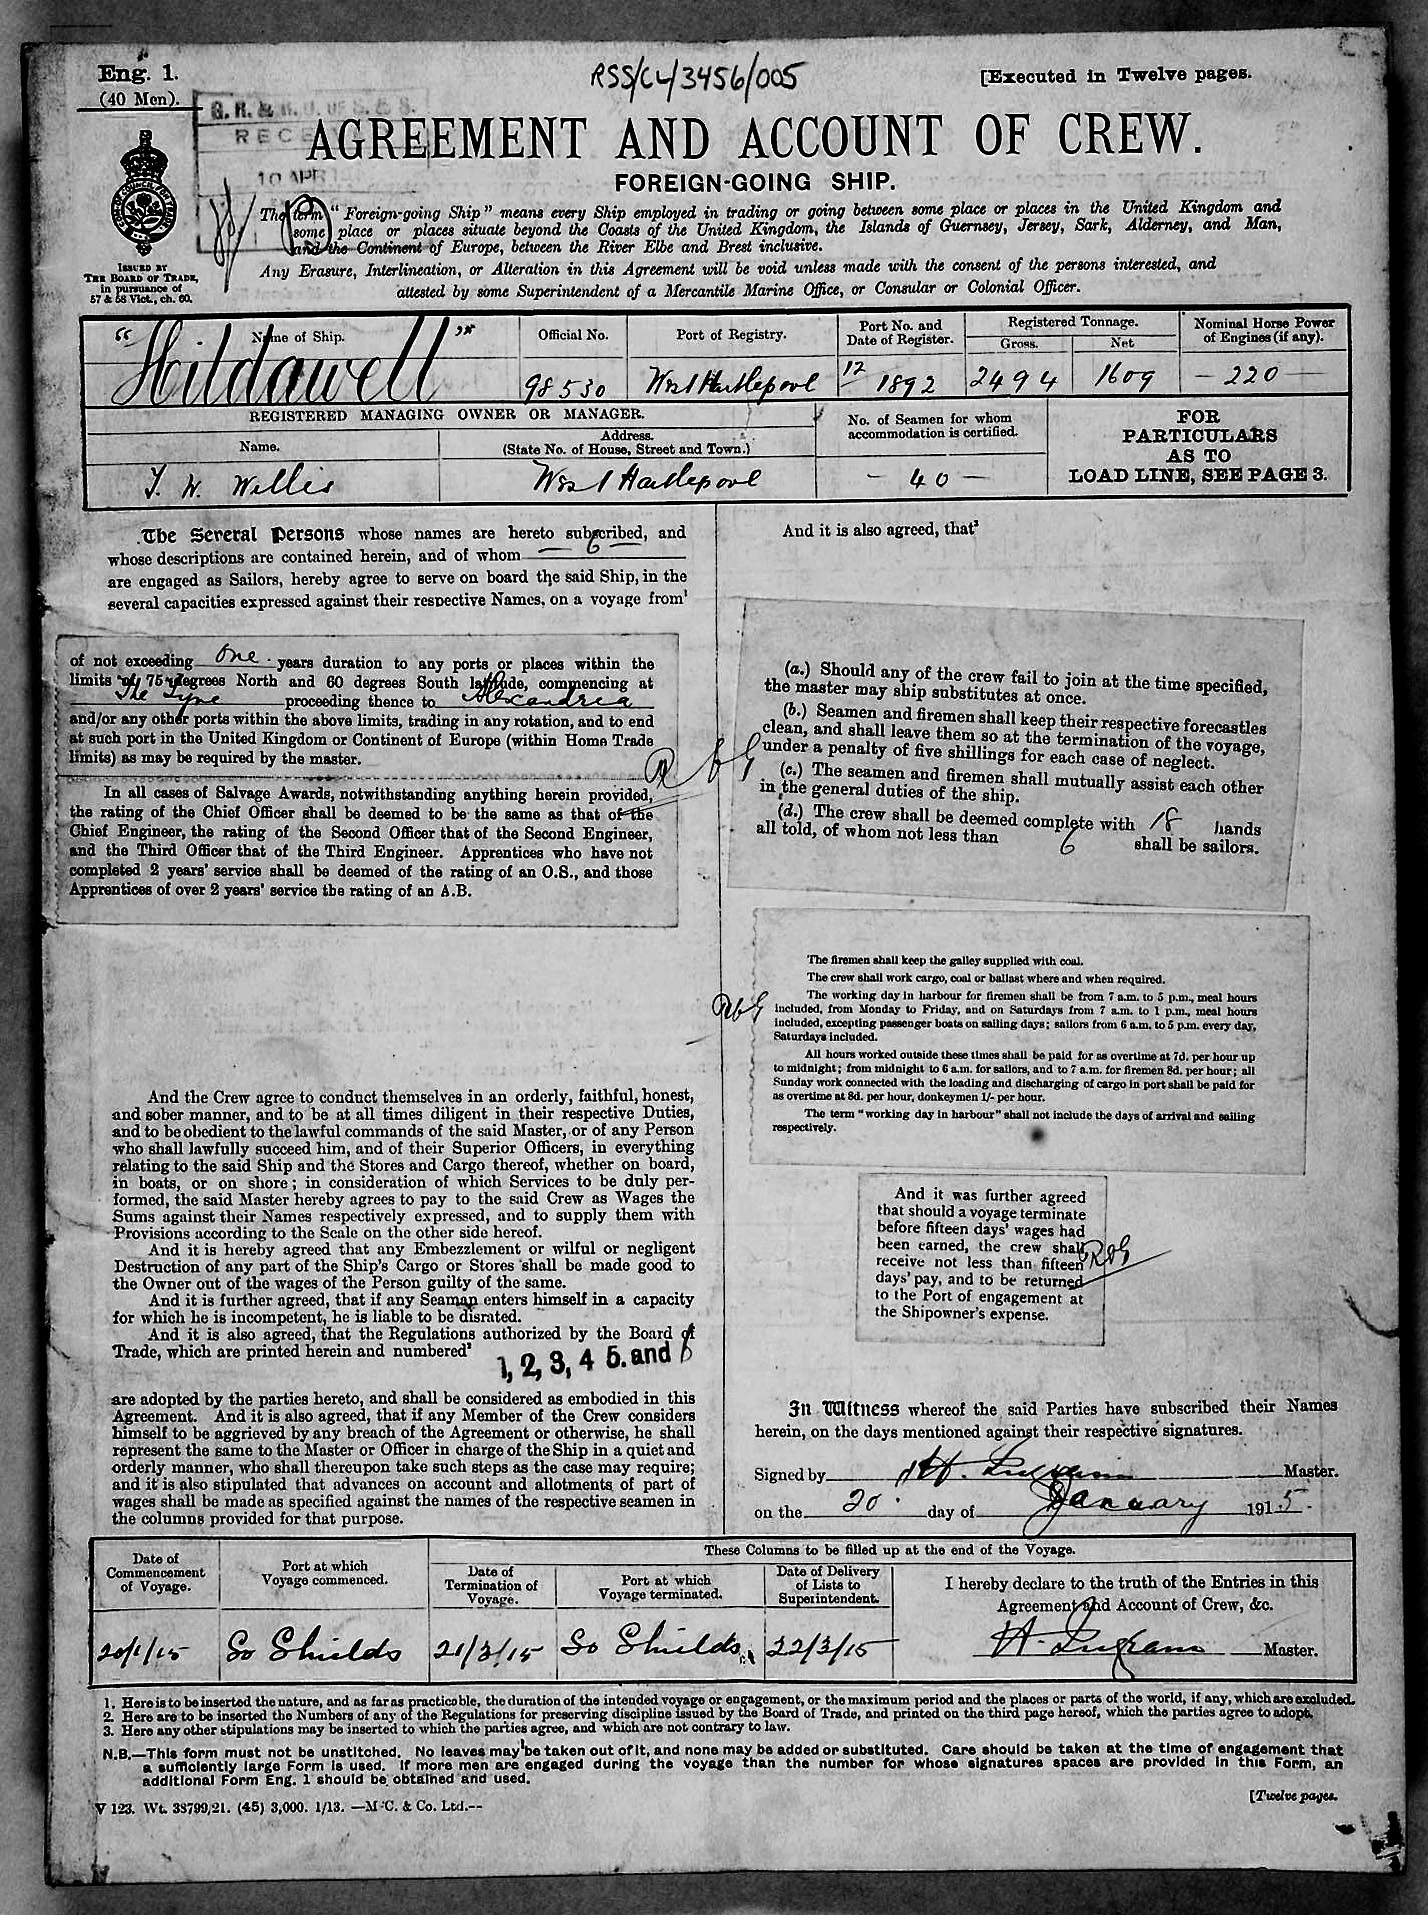 Eng. 1.
(40 Men).
RSS/CL/3456/005
[Executed in Twelve pages.
G. R. & R. U. OF S. & S.
RECE
10 APR
AGREEMENT AND ACCOUNT OF CREW.
FOREIGN-GOING SHIP.
The term "Foreign-going Ship" means every Ship employed in trading or going between some place or places in the United Kingdom and
some place or places situate beyond the Coasts of the United Kingdom, the Islands of Guernsey, Jersey, Sark, Alderney, and Man,
and the Continent of Europe, between the River Elbe and Brest inclusive.
Any Erasure, Interlineation, or Alteration in this Agreement will be void unless made with the consent of the persons interested, and
attested by some Superintendent of a Mercantile Marine Office, or Consular or Colonial Officer.
ISSUED BY
THE BOARD OF TRADE,
in pursuance of
57 & 58 Vict., ch. 60.
Name of Ship.
Official No.
Port of Registry.
Port No. and
Date of Register.
Registered Tonnage.
Gross.
Net
Nominal Horse Power
of Engines (if any).
"Hildawell"
98530
West Hartlepool
12/1892
2494
1609
— 220 —
REGISTERED MANAGING OWNER OR MANAGER.
Name.
Address.
(State No. of House, Street and Town.)
No. of Seamen for whom
accommodation is certified.
FOR
PARTICULARS
AS TO
LOAD LINE, SEE PAGE 3.
T. W. Willis
West Hartlepool
— 40 —
The Several Persons whose names are hereto subscribed, and
whose descriptions are contained herein, and of whom — 6
are engaged as Sailors, hereby agree to serve on board the said Ship, in the
several capacities expressed against their respective Names, on a voyage from¹
of not exceeding One years duration to any ports or places within the
limits of 75 degrees North and 60 degrees South latitude, commencing at
The Tyne proceeding thence to Alexandria
and/or any other ports within the above limits, trading in any rotation, and to end
at such port in the United Kingdom or Continent of Europe (within Home Trade
limits) as may be required by the master.
In all cases of Salvage Awards, notwithstanding anything herein provided,
the rating of the Chief Officer shall be deemed to be the same as that of the
Chief Engineer, the rating of the Second Officer that of the Second Engineer,
and the Third Officer that of the Third Engineer. Apprentices who have not
completed 2 years' service shall be deemed of the rating of an O.S., and those
Apprentices of over 2 years' service the rating of an A.B.
And the Crew agree to conduct themselves in an orderly, faithful, honest,
and sober manner, and to be at all times diligent in their respective Duties,
and to be obedient to the lawful commands of the said Master, or of any Person
who shall lawfully succeed him, and of their Superior Officers, in everything
relating to the said Ship and the Stores and Cargo thereof, whether on board,
in boats, or on shore; in consideration of which Services to be duly per-
formed, the said Master hereby agrees to pay to the said Crew as Wages the
Sums against their Names respectively expressed, and to supply them with
Provisions according to the Scale on the other side hereof.
And it is hereby agreed that any Embezzlement or wilful or negligent
Destruction of any part of the Ship's Cargo or Stores shall be made good to
the Owner out of the wages of the Person guilty of the same.
And it is further agreed, that if any Seaman enters himself in a capacity
for which he is incompetent, he is liable to be disrated.
And it is also agreed, that the Regulations authorized by the Board of
Trade, which are printed herein and numbered²
1, 2, 3, 4 5. and 6
are adopted by the parties hereto, and shall be considered as embodied in this
Agreement. And it is also agreed, that if any Member of the Crew considers
himself to be aggrieved by any breach of the Agreement or otherwise, he shall
represent the same to the Master or Officer in charge of the Ship in a quiet and
orderly manner, who shall thereupon take such steps as the case may require;
and it is also stipulated that advances on account and allotments of part of
wages shall be made as specified against the names of the respective seamen in
the columns provided for that purpose.
And it is also agreed, that³
(a.) Should any of the crew fail to join at the time specified,
the master may ship substitutes at once.
(b.) Seamen and firemen shall keep their respective forecastles
clean, and shall leave them so at the termination of the voyage,
under a penalty of five shillings for each case of neglect.
(c.) The seamen and firemen shall mutually assist each other
in the general duties of the ship.
(d.) The crew shall be deemed complete with 18 hands
all told, of whom not less than 6 shall be sailors.
RbG
The firemen shall keep the galley supplied with coal.
The crew shall work cargo, coal or ballast where and when required.
The working day in harbour for firemen shall be from 7 a.m. to 5 p.m., meal hours
included, from Monday to Friday, and on Saturdays from 7 a.m. to 1 p.m., meal hours
included, excepting passenger boats on sailing days; sailors from 6 a.m. to 5 p.m. every day,
Saturdays included.
All hours worked outside these times shall be paid for as overtime at 7d. per hour up
to midnight; from midnight to 6 a.m. for sailors, and to 7 a.m. for firemen 8d. per hour; all
Sunday work connected with the loading and discharging of cargo in port shall be paid for
as overtime at 8d. per hour, donkeymen 1/- per hour.
The term "working day in harbour" shall not include the days of arrival and sailing
respectively.
RbG
And it was further agreed
that should a voyage terminate
before fifteen days' wages had
been earned, the crew shall
receive not less than fifteen
days' pay, and to be returned
to the Port of engagement at
the Shipowner's expense.
RbG
In Witness whereof the said Parties have subscribed their Names
herein, on the days mentioned against their respective signatures.
Signed by H. Ingram Master.
on the 20. day of January 1915.
Date of
Commencement
of Voyage.
Port at which
Voyage commenced.
These Columns to be filled up at the end of the Voyage.
Date of
Termination of
Voyage.
Port at which
Voyage terminated.
Date of Delivery
of Lists to
Superintendent.
I hereby declare to the truth of the Entries in this
Agreement and Account of Crew, &c.
20/1/15
So Shields
21/3/15
So Shields
22/3/15
H. Ingram Master.
1. Here is to be inserted the nature, and as far as practicable, the duration of the intended voyage or engagement, or the maximum period and the places or parts of the world, if any, which are excluded.
2. Here are to be inserted the Numbers of any of the Regulations for preserving discipline issued by the Board of Trade, and printed on the third page hereof, which the parties agree to adopt.
3. Here any other stipulations may be inserted to which the parties agree, and which are not contrary to law.
N.B.—This form must not be unstitched. No leaves may be taken out of it, and none may be added or substituted. Care should be taken at the time of engagement that
a sufficiently large Form is used. If more men are engaged during the voyage than the number for whose signatures spaces are provided in this Form, an
additional Form Eng. 1 should be obtained and used.
V 123. Wt. 38799/21. (45) 3,000. 1/13. —M'C. & Co. Ltd.--
[Twelve pages.